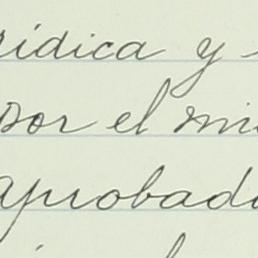 rídica y
por el mi
aprobad